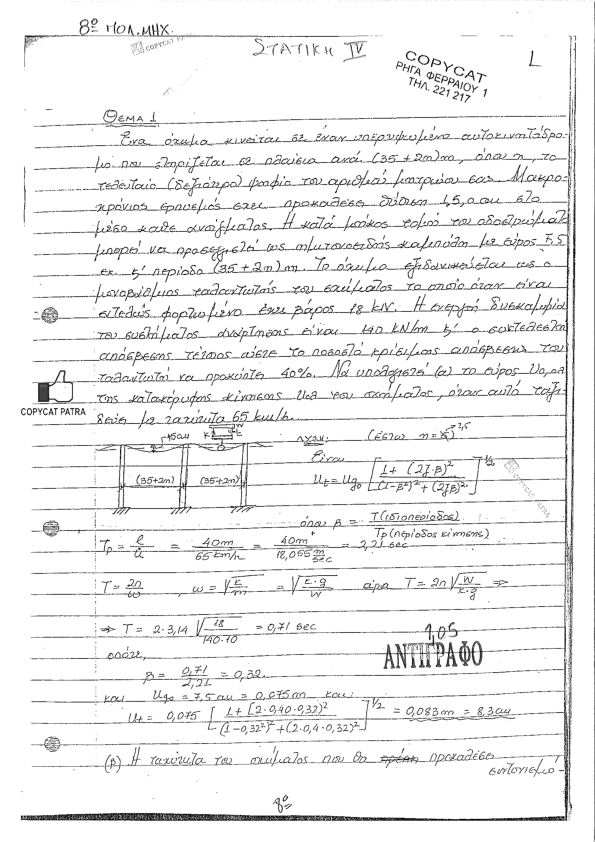 8º ΠΟΛ. ΜΗΧ.
COPYCAT PATRA
ΣΤΑΤΙΚΗ IV
COPYCAT
ΡΗΓΑ ΦΕΡΡΑΙΟΥ 1
ΤΗΛ. 221 217
ΘΕΜΑ 1
Ένα όχημα κινείται σε έναν υπερυψωμένο αυτοκινητόδρο-
μο που στηρίζεται σε πλαίσια ανά (35+2n)m, όπου n, το
τελευταίο (δεξιότερο) ψηφίο του αριθμού μητρώου σας. Μακρο-
χρόνιος ερπυσμός έχει προκαλέσει βύθιση στο
μέσο κάθε ανοίγματος. Η κατά μήκος τομή του οδοστρώματος
μπορεί να προσεγγιστεί ως ημιτονοειδής καμπύλη με εύρος
εκ. & περίοδο (35+2n)m. Το όχημα εξιδανικεύεται ως ο
μονοβάθμιος ταλαντωτής του σχήματος το οποίο όταν είναι
εντελώς φορτωμένο έχει βάρος 18 kN. Η ενεργή δυσκαμψία
του συστήματος ανάρτησης είναι 140 kN/m & ο συντελεστής
απόσβεσης τέτοιος ώστε το ποσοστό κρίσιμης απόσβεσης του
ταλαντωτή να προκύπτει 40%. Να υπολογιστεί (α) το εύρος
της κατακόρυφης κίνησης του οχήματος, όταν αυτό ταξι-
δεύει με ταχύτητα 65 km/h.
COPYCAT PATRA
15cm
W
K
(35+2n)
(35+2n)
ΛΥΣΗ: (έστω n=
2,5
Είναι
Ut = Ugo [ (1+(2ζ·β)²) / ((1-β²)²+(2ζβ)²) ]^1/2
COPYCAT PATRA
όπου β = T(ιδιοπερίοδος) / Tp(περίοδος κίνησης)
Tp = ℓ/u = 40m / 65 km/h = 40m / 18,055 m/sec = 2,21 sec
T = 2π/ω , ω = √(k/m) = √(k·g/W) άρα T = 2π√(W/(k·g)) ⇒
⇒ T = 2·3,14 √(18/(140·10)) = 0,71 sec
1,05
ΑΝΤΙΓΡΑΦΟ
οπότε,
β = 0,71/2,21 = 0,32
και Ugo = 7,5 cm = 0,075m και:
Ut = 0,075 [ (1+(2·0,40·0,32)²) / ((1-0,32²)²+(2·0,4·0,32)²) ]^1/2 = 0,083m = 8,3cm
(β) Η ταχύτητα του οχήματος που θα προκαλέσει
συντονισμό
8º